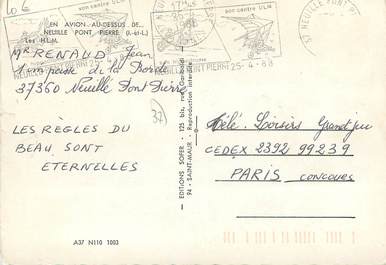 10 €
son centre ULM
son centre ULM
EN AVION AU-DESSUS DE...
NEUILLE PONT PIERRE (I.-et-L.)
Les H.L.M.
17H45
Mr RENAUD Jean
NEUILLE PONT PIERRE 25-4-88
impasse de la
37360 Neuillé Pont Pierre
37
LES RÈGLES DU
BEAU SONT
ETERNELLES
EDITIONS SOFER - 125 bis, rue Garibaldi
94 - SAINT-MAUR - Reproduction interdite
Télé. Loisirs Grand jeu
CEDEX 2392 99239
PARIS CONCOURS
A37 N110 1003